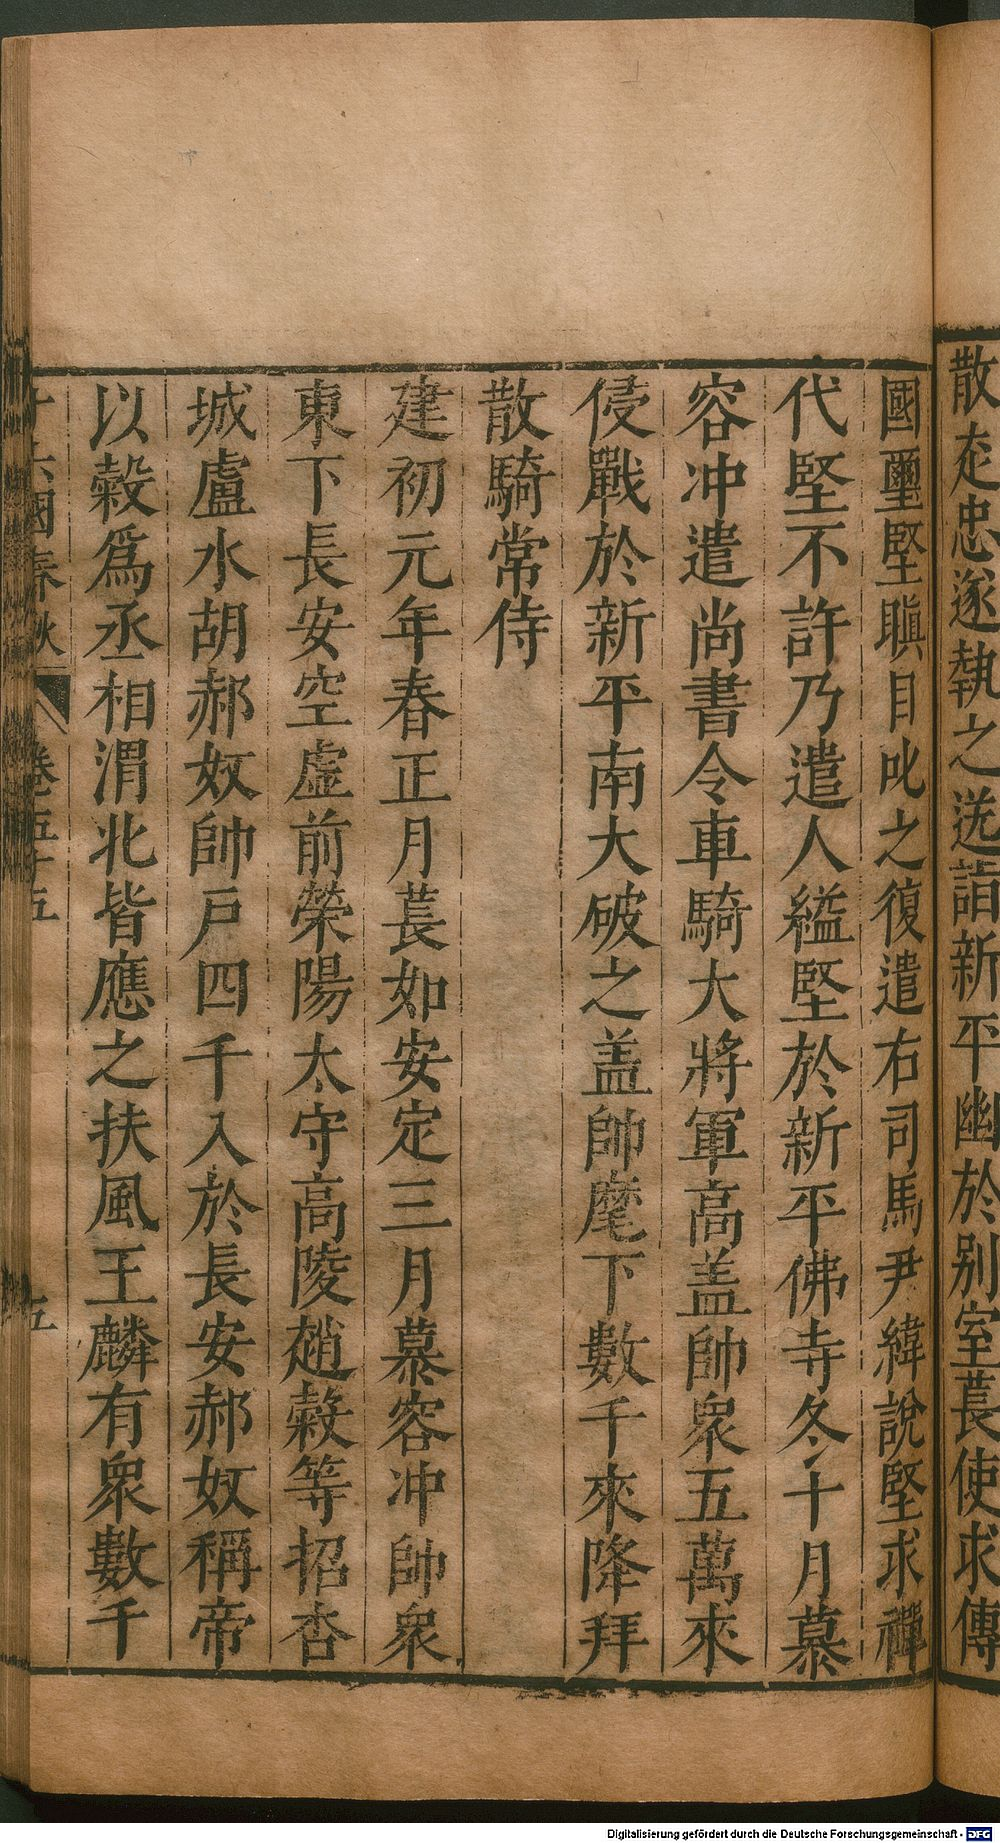 散走忠遂執之送詣新平幽於別室萇使求傳
國璽堅瞋目叱之復遣右司馬尹緯說堅求禪
代堅不許乃遣人縊堅於新平佛寺冬十月慕
容冲遣尚書令車騎大將軍高盖帥衆五萬來
侵戰於新平南大破之盖帥麾下數千來降拜
散騎常侍
建初元年春正月萇如安定三月慕容冲帥衆
東下長安空虛前滎陽太守高陵趙穀等招杏
城盧水胡郝奴帥戶四千入於長安郝奴稱帝
以穀爲丞相渭北皆應之扶風王麟有衆數千
十六國春秋 卷五十五 五
Digitalisierung gefördert durch die Deutsche Forschungsgemeinschaft - DFG